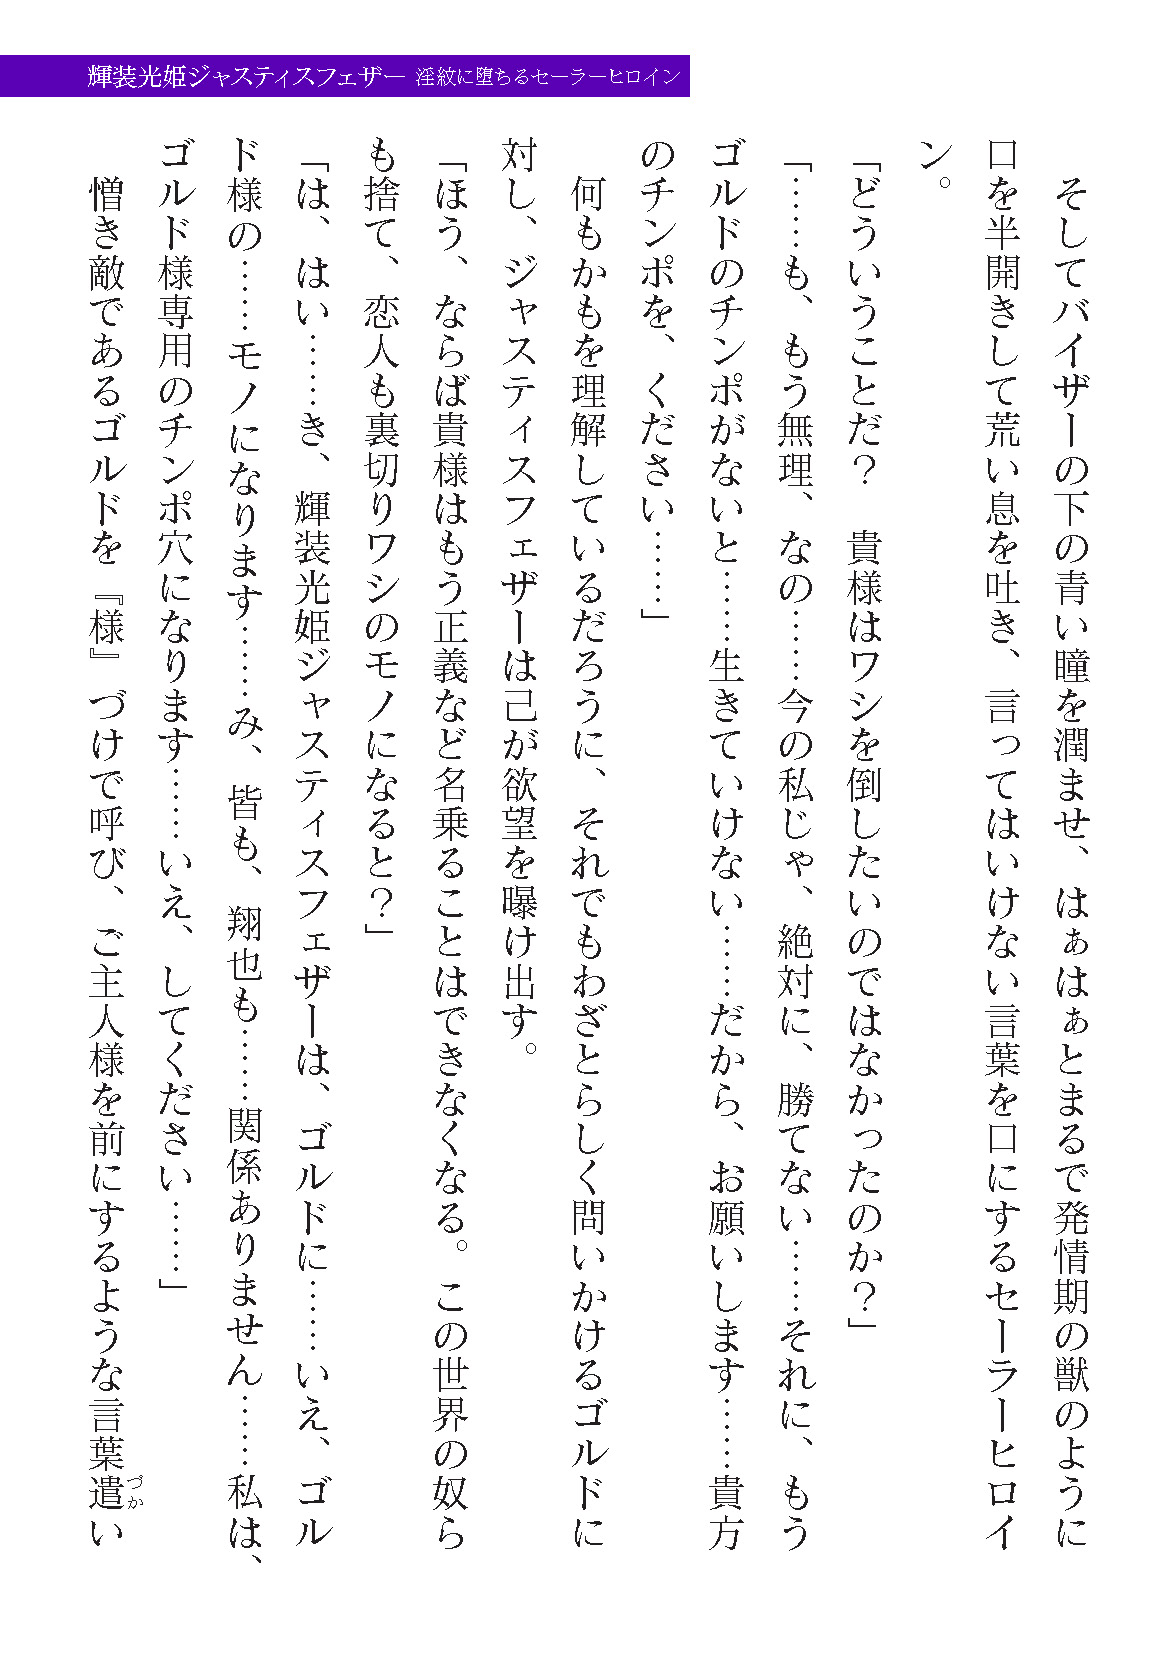 輝装光姫ジャスティスフェザー 淫紋に堕ちるセーラーヒロイン
　そしてバイザーの下の青い瞳を潤ませ、はぁはぁとまるで発情期の獣のように
口を半開きして荒い息を吐き、言ってはいけない言葉を口にするセーラーヒロイ
ン。
「どういうことだ？　貴様はワシを倒したいのではなかったのか？」
「……も、もう無理、なの……今の私じゃ、絶対に、勝てない……それに、もう
ゴルドのチンポがないと……生きていけない……だから、お願いします……貴方
のチンポを、ください……」
　何もかもを理解しているだろうに、それでもわざとらしく問いかけるゴルドに
対し、ジャスティスフェザーは己が欲望を曝け出す。
「ほう、ならば貴様はもう正義など名乗ることはできなくなる。この世界の奴ら
も捨て、恋人も裏切りワシのモノになると？」
「は、はい……き、輝装光姫ジャスティスフェザーは、ゴルドに……いえ、ゴル
ド様の……モノになります……み、皆も、翔也も……関係ありません……私は、
ゴルド様専用のチンポ穴になります……いえ、してください……」
　憎き敵であるゴルドを『様』づけで呼び、ご主人様を前にするような言葉遣い
づか